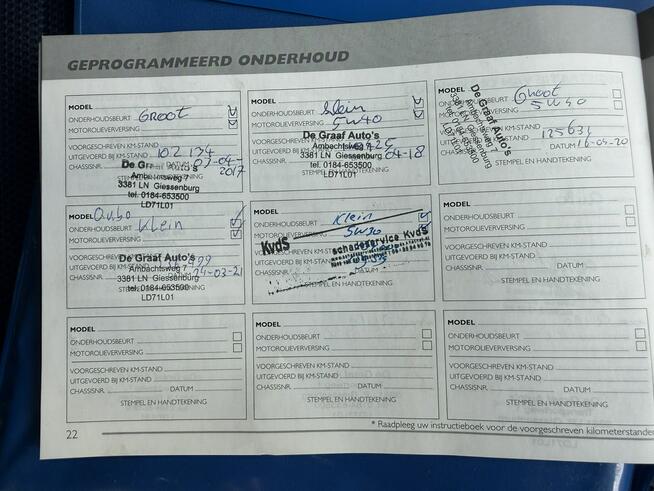 GEPROGRAMMEERD ONDERHOUD
MODEL
ONDERHOUDSBEURT GROOT
MOTOROLIEVERVERSING
VOORGESCHREVEN KM-STAND
UITGEVOERD BIJ KM-STAND 102134
CHASSISNR. DATUM 07-04-2017
STEMPEL EN HANDTEKENING
De Graaf Auto's
Ambachtsweg 7
3381 LN Giessenburg
tel. 0184-653500
LD71L01
MODEL
ONDERHOUDSBEURT Klein
MOTOROLIEVERVERSING 5W40
VOORGESCHREVEN KM-STAND
UITGEVOERD BIJ KM-STAND
CHASSISNR. 04-18
STEMPEL EN HANDTEKENING
De Graaf Auto's
Ambachtsweg 7
3381 LN Giessenburg
tel. 0184-653500
LD71L01
MODEL
ONDERHOUDSBEURT Groot
MOTOROLIEVERVERSING 5W40
VOORGESCHREVEN KM-STAND
UITGEVOERD BIJ KM-STAND 125631
CHASSISNR. DATUM 16-04-20
STEMPEL EN HANDTEKENING
De Graaf Auto's
Ambachtsweg 7
3381 LN Giessenburg
tel. 0184-653500
LD71L01
MODEL
ONDERHOUDSBEURT Klein
MOTOROLIEVERVERSING
VOORGESCHREVEN KM-STAND
UITGEVOERD BIJ KM-STAND
CHASSISNR. 24-03-21
De Graaf Auto's
Ambachtsweg 7
3381 LN Giessenburg
tel. 0184-653500
LD71L01
MODEL
ONDERHOUDSBEURT Klein
MOTOROLIEVERVERSING 5W30
VOORGESCHREVEN KM-STAND
UITGEVOERD BIJ KM-STAND
CHASSISNR.
STEMPEL EN HANDTEKENING
KvdS
schadeservice KvdS
MODEL
ONDERHOUDSBEURT
MOTOROLIEVERVERSING
VOORGESCHREVEN KM-STAND
UITGEVOERD BIJ KM-STAND
CHASSISNR. DATUM
STEMPEL EN HANDTEKENING
MODEL
ONDERHOUDSBEURT
MOTOROLIEVERVERSING
VOORGESCHREVEN KM-STAND
UITGEVOERD BIJ KM-STAND
CHASSISNR. DATUM
STEMPEL EN HANDTEKENING
MODEL
ONDERHOUDSBEURT
MOTOROLIEVERVERSING
VOORGESCHREVEN KM-STAND
UITGEVOERD BIJ KM-STAND
CHASSISNR. DATUM
STEMPEL EN HANDTEKENING
MODEL
ONDERHOUDSBEURT
MOTOROLIEVERVERSING
VOORGESCHREVEN KM-STAND
UITGEVOERD BIJ KM-STAND
CHASSISNR. DATUM
STEMPEL EN HANDTEKENING
22
* Raadpleeg uw instructieboek voor de voorgeschreven kilometerstanden